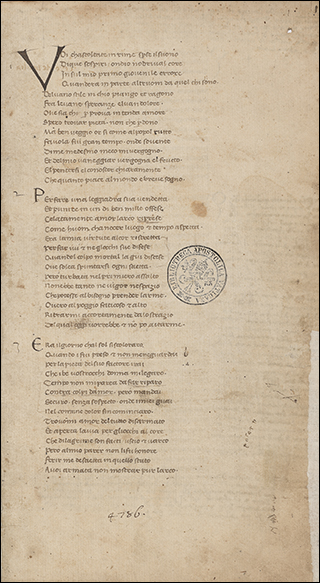 Voi chascoltate in rime sparse il suono
Di que sospiri ondio nodriva il core
In sul mio primo giovenile errore
Quandera in parte altrom da quel chi sono
Del vario stile in chio piango et ragono
Fra le vane speranze el van dolore
Ove sia chi per prova intenda amore
Spero trovar pieta non che perdono
Ma ben veggio or si come al popol tutto
Favola fui gran tempo onde sovente
Di me medesmo meco mi vergogno
Et del mio vaneggiar vergogna el frutto
El pentersi el conoscer chiaramente
Che quanto piace al mondo e breve sogno
2
Per fare una leggiadra sua vendetta
Et punire in un di ben mille offese
Celatamente amor larco riprese
Come huom cha nocer luogo et tempo aspetta
Era la mia virtute al cor ristretta
Per far ivi et ne gliocchi sue difese
Quandol colpo mortal la giu discese
Ove solea spuntarsi ogni saetta
Pero turbata nel primiero assalto
Non ebbe tanto ne vigor ne spazio
Che potesse al bisogno prender larme
Overo al poggio faticoso et alto
Ritrarmi accortamente da lo strazio
Del qual oggi vorrebbe et no po aitarme
3
Era il giorno chal sol si scoloraro
Quando i fui preso et non me ne guardai
per la pieta del suo factore i rai
Che i be vostrocchi donna mi legaro
Tempo non mi parea da far riparo
Contra colpi damor pero mandai
Securo senza sospecto onde i miei guai
Nel comune dolor sincominciaro
Trovommi amor del tutto disarmato
Et aperta la via per gliocchi al core
Che di lagrime son facti uscio et varco
Pero al mio parer non li fu honore
Ferir me de saetta in quello stato
A voi armata non mostrar pur larco
BIBLIOTECA APOSTOLICA VATICANA